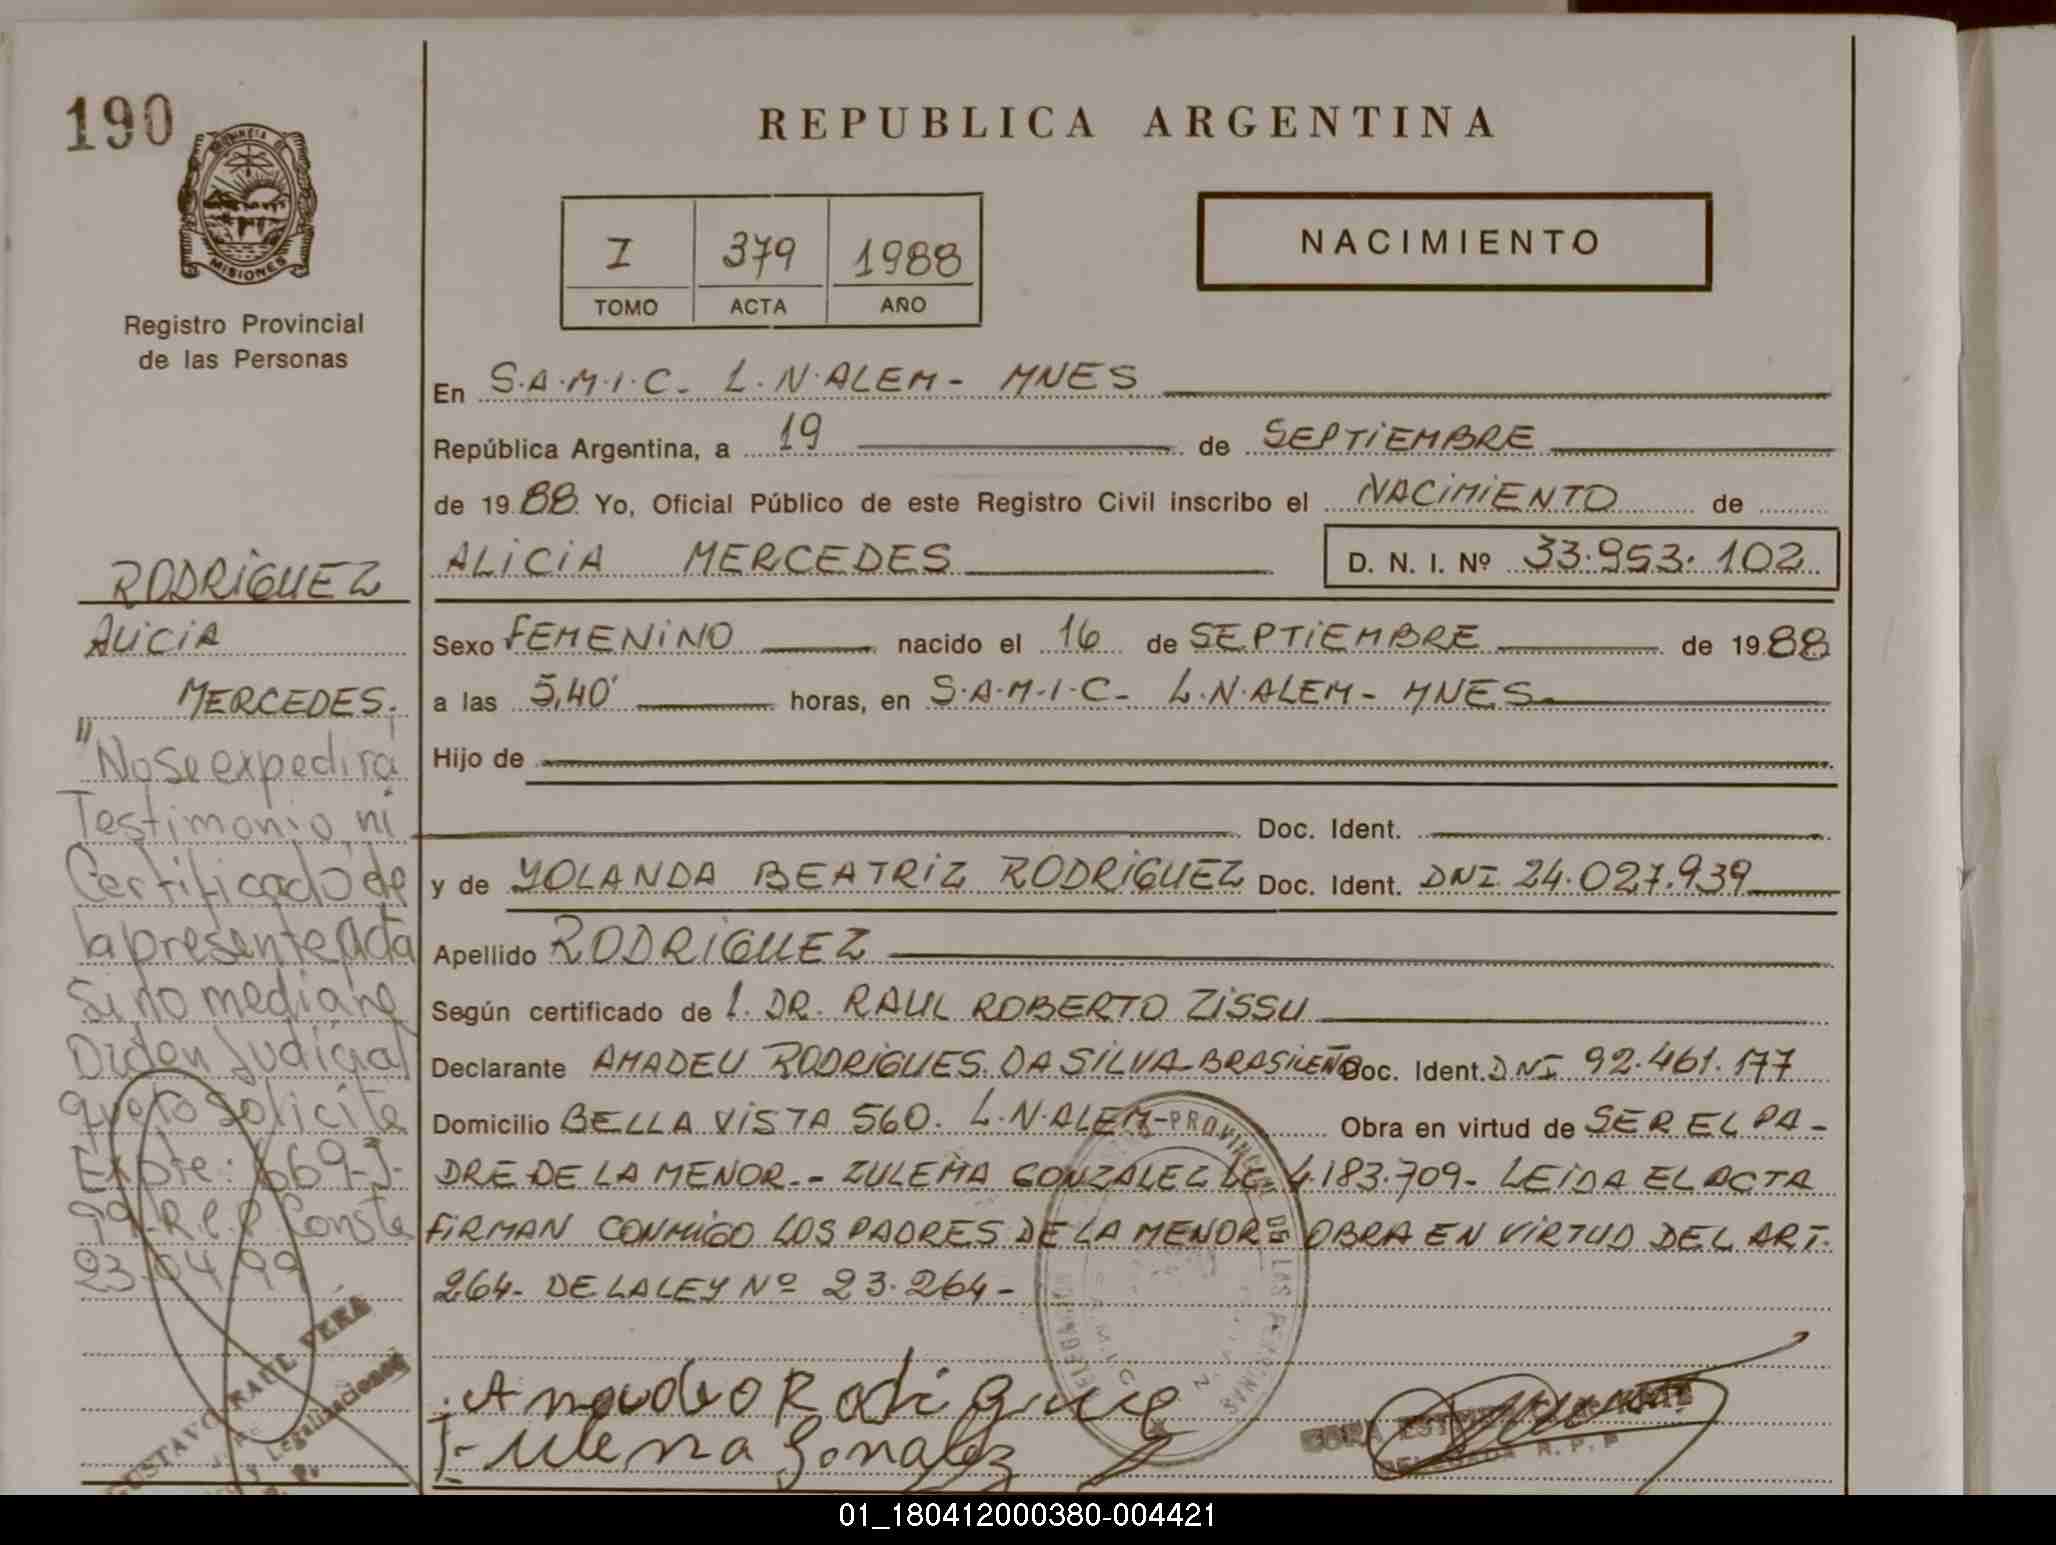 190
PROVINCIA DE
MISIONES
Registro Provincial
de las Personas
REPUBLICA ARGENTINA
I 379 1988
TOMO ACTA AÑO
NACIMIENTO
En S.A.M.I.C- L.N.ALEM- MNES
República Argentina, a 19 de SEPTIEMBRE
de 1988 Yo, Oficial Público de este Registro Civil inscribo el NACIMIENTO de
ALICIA MERCEDES D. N. I. Nº 33.953.102
Sexo FEMENINO nacido el 16 de SEPTIEMBRE de 1988
a las 5,40' horas, en S.A.M.I.C- L.N.ALEM- MNES
Hijo de
Doc. Ident.
y de YOLANDA BEATRIZ RODRIGUEZ Doc. Ident. DNI 24.027.939
Apellido RODRIGUEZ
Según certificado de l. DR. RAUL ROBERTO ZISSU
Declarante AMADEU RODRIGUES DA SILVA-BRASILEÑO Doc. Ident. DNI 92.461.177
Domicilio BELLA VISTA 560. L.N.ALEM- Obra en virtud de SER EL PA-
DRE DE LA MENOR.- ZULEMA GONZALEZ LC 4.183.709- LEIDA EL ACTA
FIRMAN CONMIGO LOS PADRES DE LA MENOR- OBRA EN VIRTUD DEL ART.
264- DE LA LEY Nº 23.264-
RODRIGUEZ
ALICIA
MERCEDES.
"No se expedirá
Testimonio ni
Certificado de
la presente Acta
Si no mediare
Orden Judicial
que lo solicite
Expte: 1669-J-
99-R.P.P Conste
23-04-99
GUSTAVO RAUL VERA
y Legalizaciones
PROVINCIAL DE LAS PERSONAS
S.A.M.I.C
Amadeo Rodrigue
Zulema Gonzalez
DELEGADA R.P.P
01_180412000380-004421